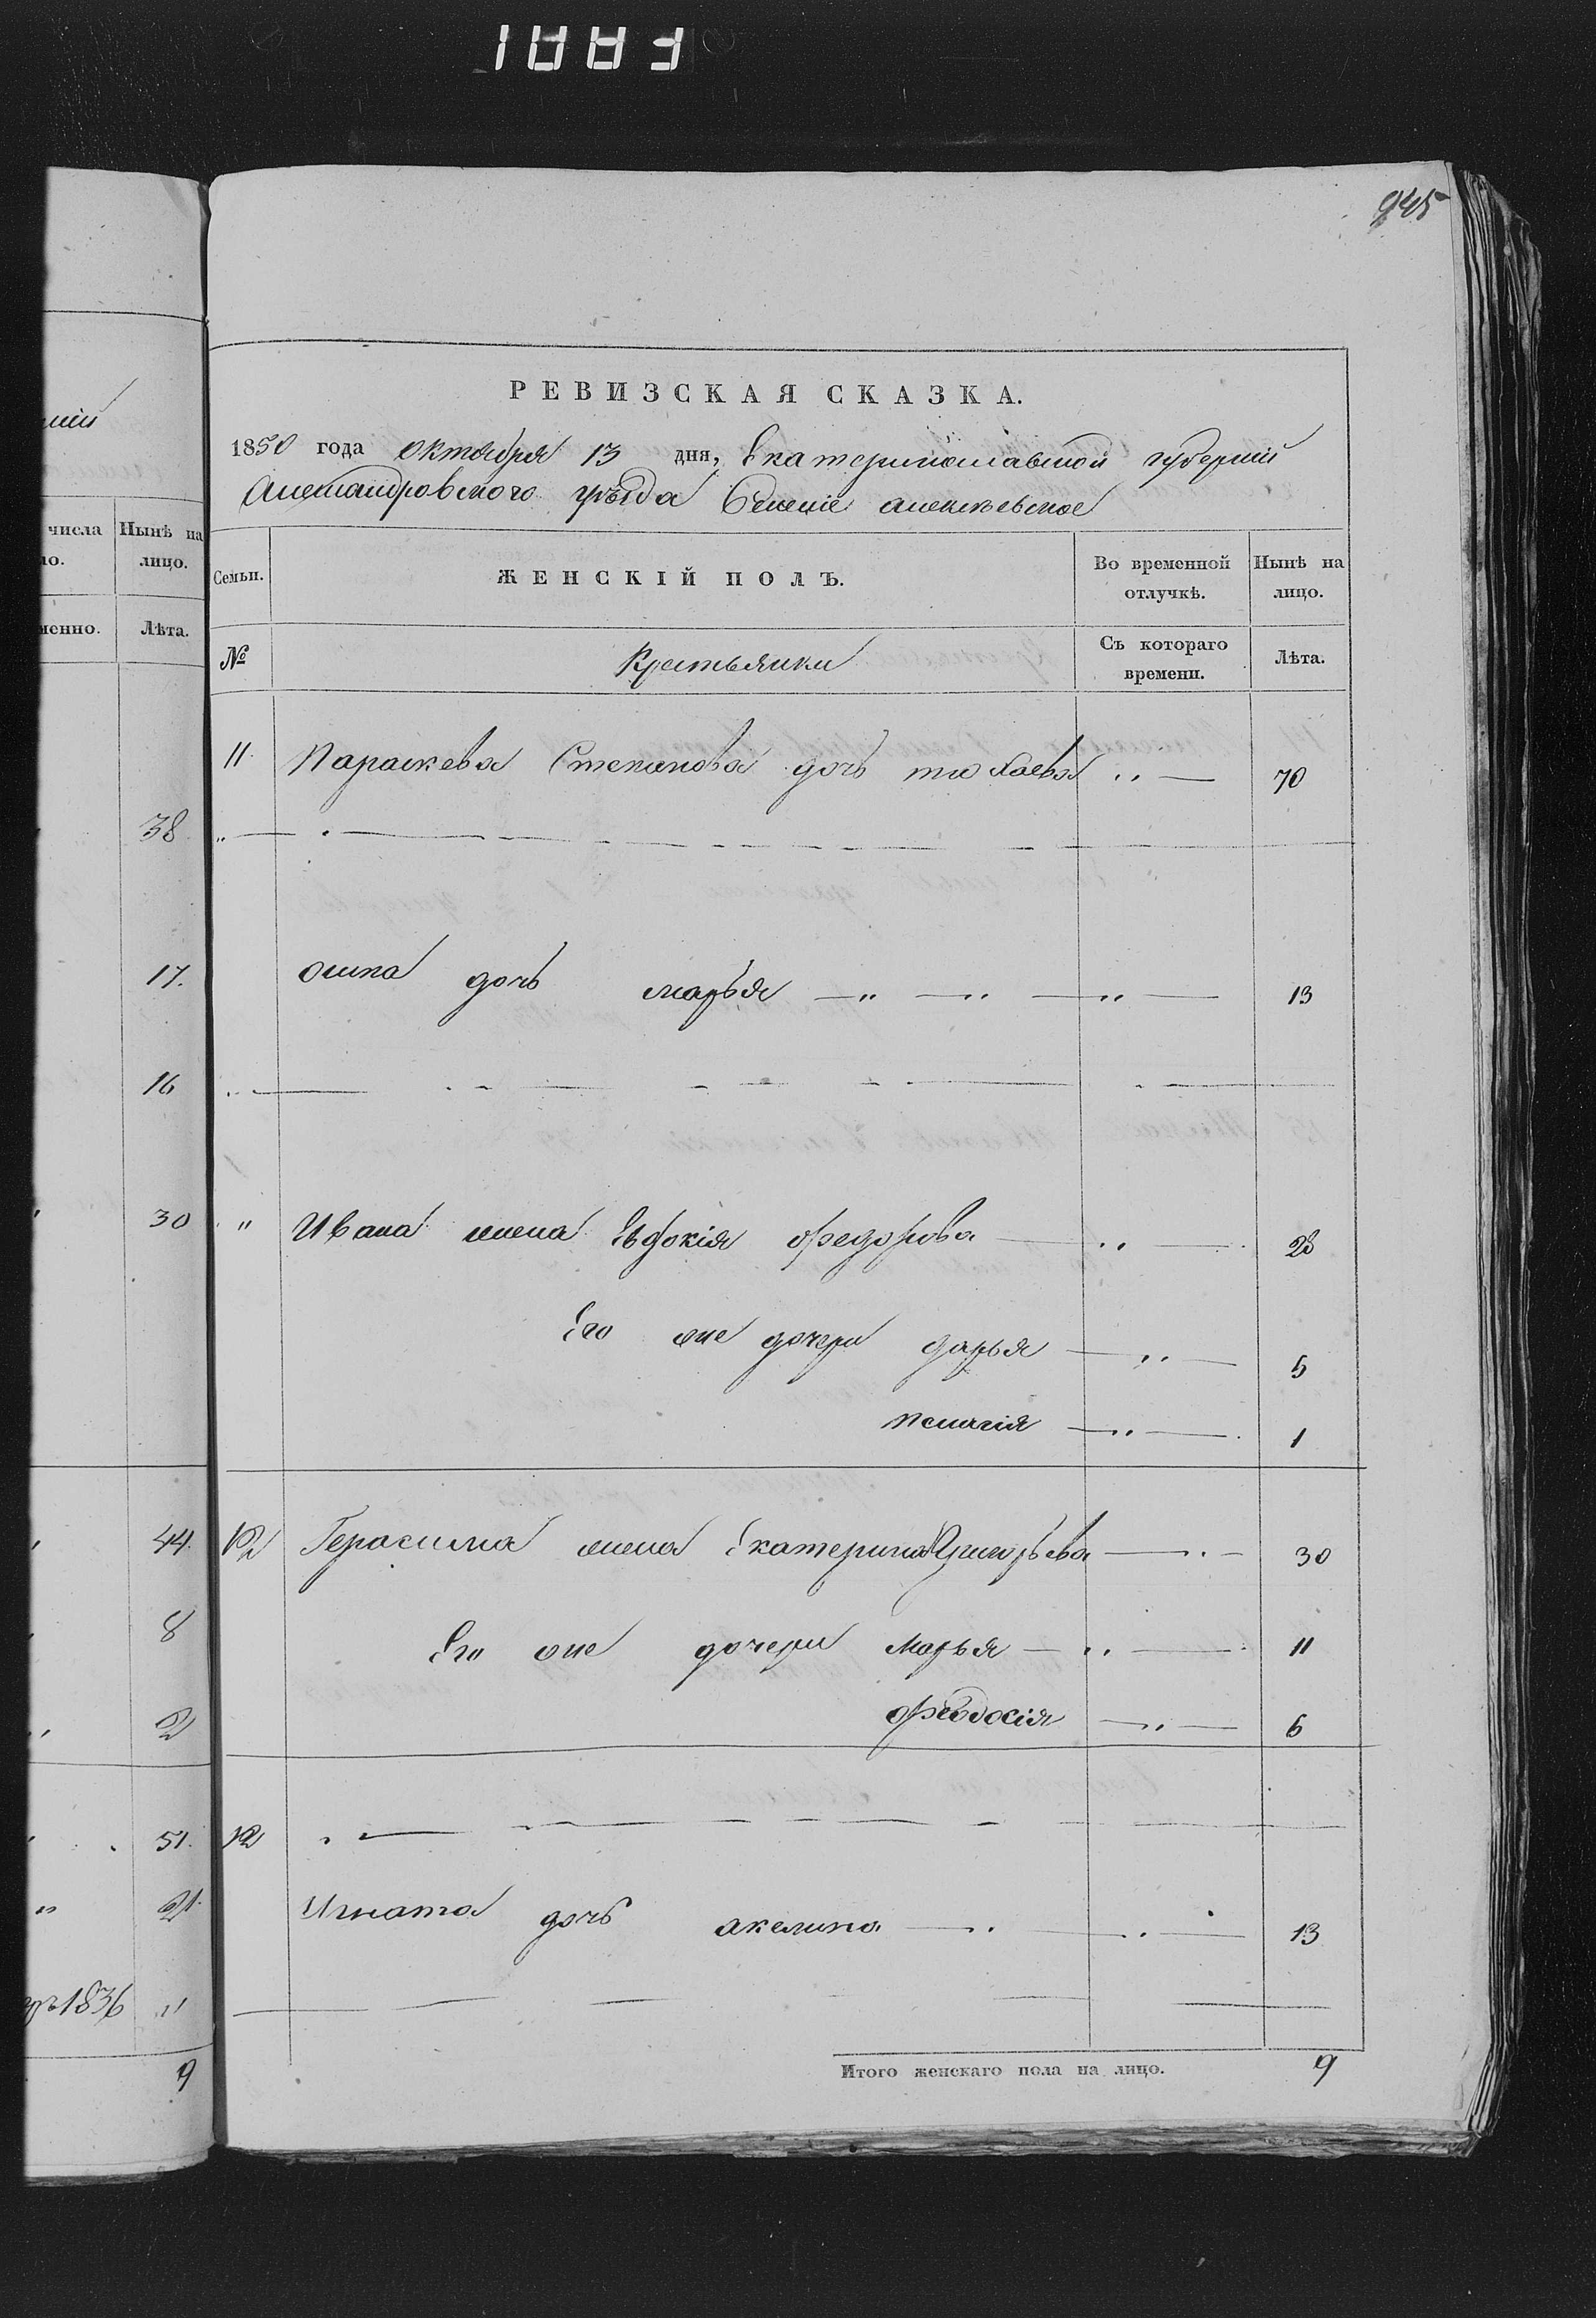 945
мніи
числа
но.
Нынѣ на
лицо.
менно.
Лѣта.
38
17.
16
30
44.
8
2
51.
21.
1836 "
9
РЕВИЗСКАЯ СКАЗКА.
1850 года октября 13 дня, Екатеринославской губерніи
Александровского уѣзда Селеніе алексѣевское
Семьи.
ЖЕНСКІЙ ПОЛЪ.
Во временной
отлучкѣ.
Нынѣ на
лицо.
№
Крестьянки
Съ котораго
времени.
Лѣта.
11. Параскева Степанова дочь 70
дочь марья — " — " — " — 13
" Ивана жена Евдокія федорова — " — 28
Его же дочери дарья — " — 5
— " — 1
12 Герасима жена Екатерина Григорьева — " — 30
Его же дочери Марья — " — 11
феодосія — " — 6
12
Игната дочь акелина — " — " — 13
Итого женскаго пола на лицо. 9